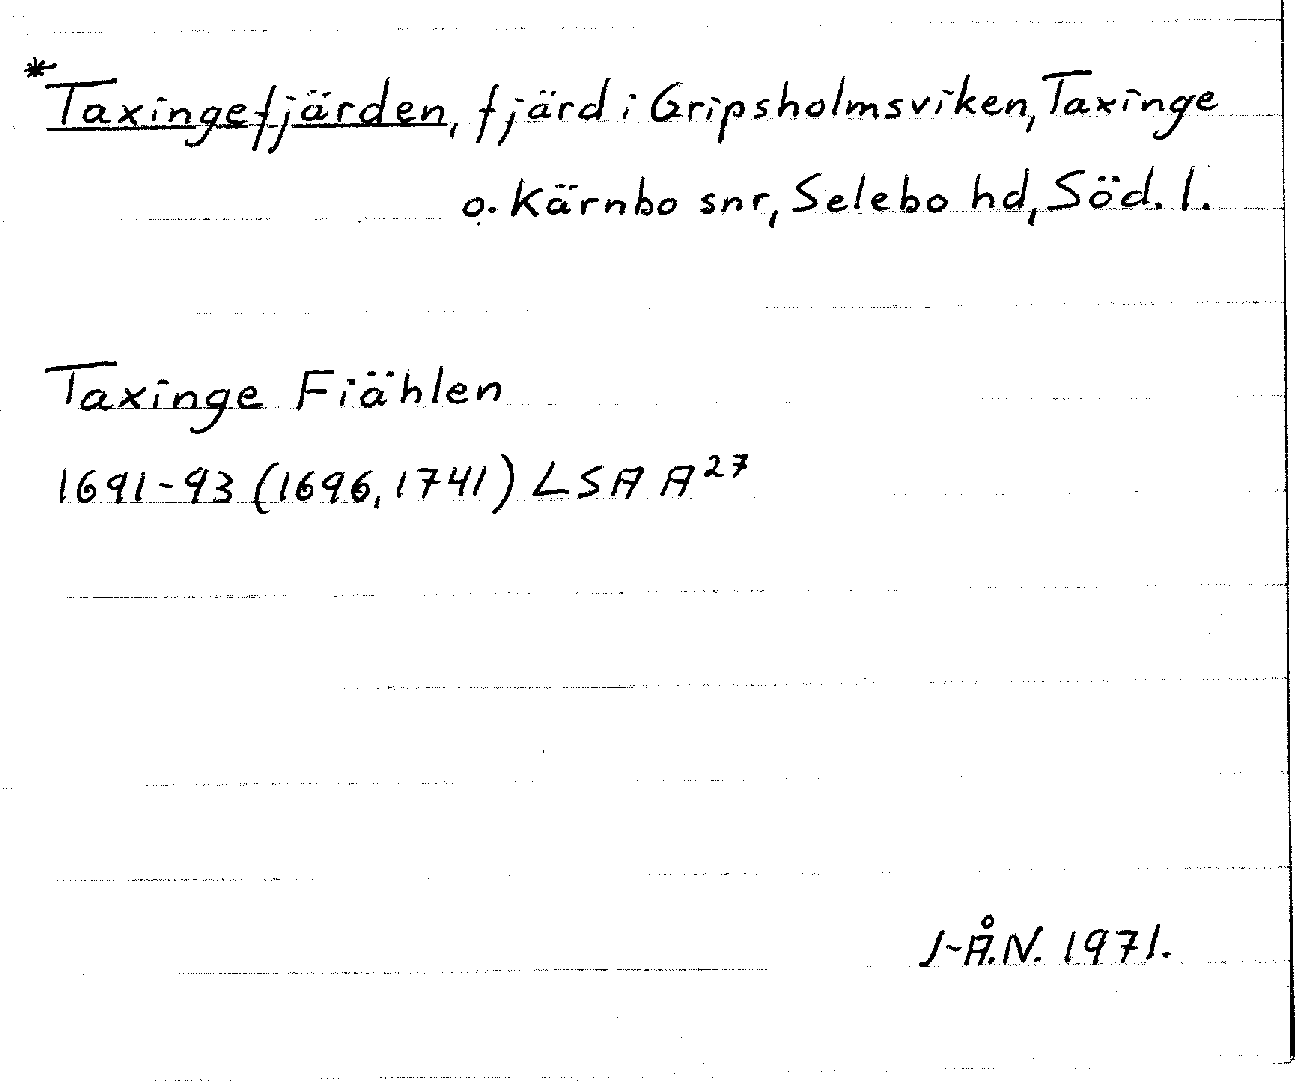 *Taxingefjärden, fjärd i Gripsholmsviken, Taxinge
o. Kärnbo snr, Selebo hd, Söd. l.
Taxinge Fiählen
1691-93 (1696, 1741) LSA A27
J-Å.N. 1971.